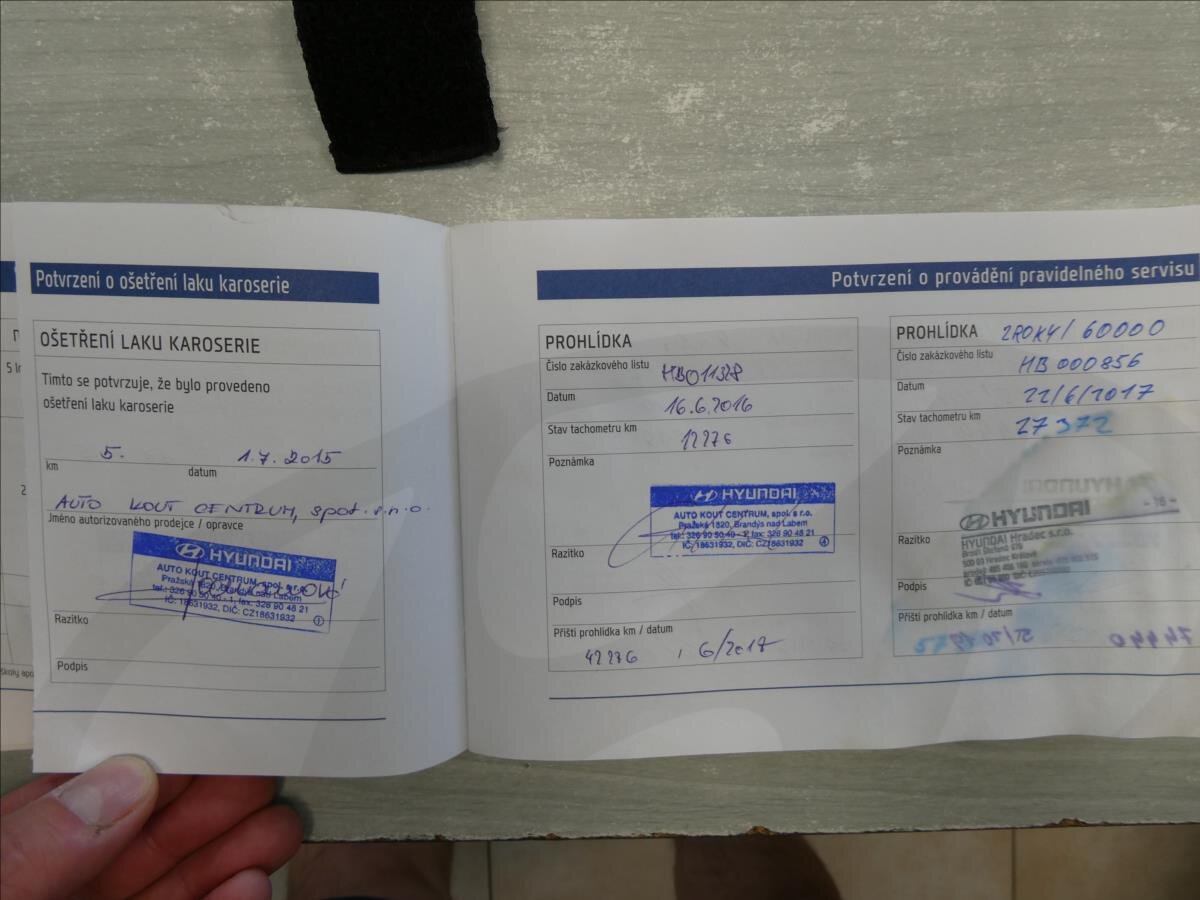 Potvrzení o ošetření laku karoserie
OŠETŘENÍ LAKU KAROSERIE
Tímto se potvrzuje, že bylo provedeno
ošetření laku karoserie
5. 1.7.2015
km datum
AUTO KOUT CENTRUM, spol. s.r.o.
Jméno autorizovaného prodejce / opravce
HYUNDAI
AUTO KOUT CENTRUM, spol. s r.o.
Pražská 1820, Brandýs nad Labem
tel.: 326 90 50 40 - 1, fax: 326 90 48 21
IČ: 18631932, DIČ: CZ18631932 1
Razítko
Podpis
Potvrzení o provádění pravidelného servisu
PROHLÍDKA
Číslo zakázkového listu HB011328
Datum 16.6.2016
Stav tachometru km 12276
Poznámka
HYUNDAI
AUTO KOUT CENTRUM, spol. s r.o.
Pražská 1820, Brandýs nad Labem
tel.: 326 90 50 40 - 1, fax: 326 90 48 21
IČ: 18631932, DIČ: CZ18631932 4
Razítko
Podpis
Příští prohlídka km / datum
42276 , 6/2017
PROHLÍDKA 2ROKY/60000
Číslo zakázkového listu HB000856
Datum 22/6/2017
Stav tachometru km 27372
Poznámka
HYUNDAI
- 16 -
HYUNDAI Hradec s.r.o.
Razítko
Podpis
Příští prohlídka km / datum